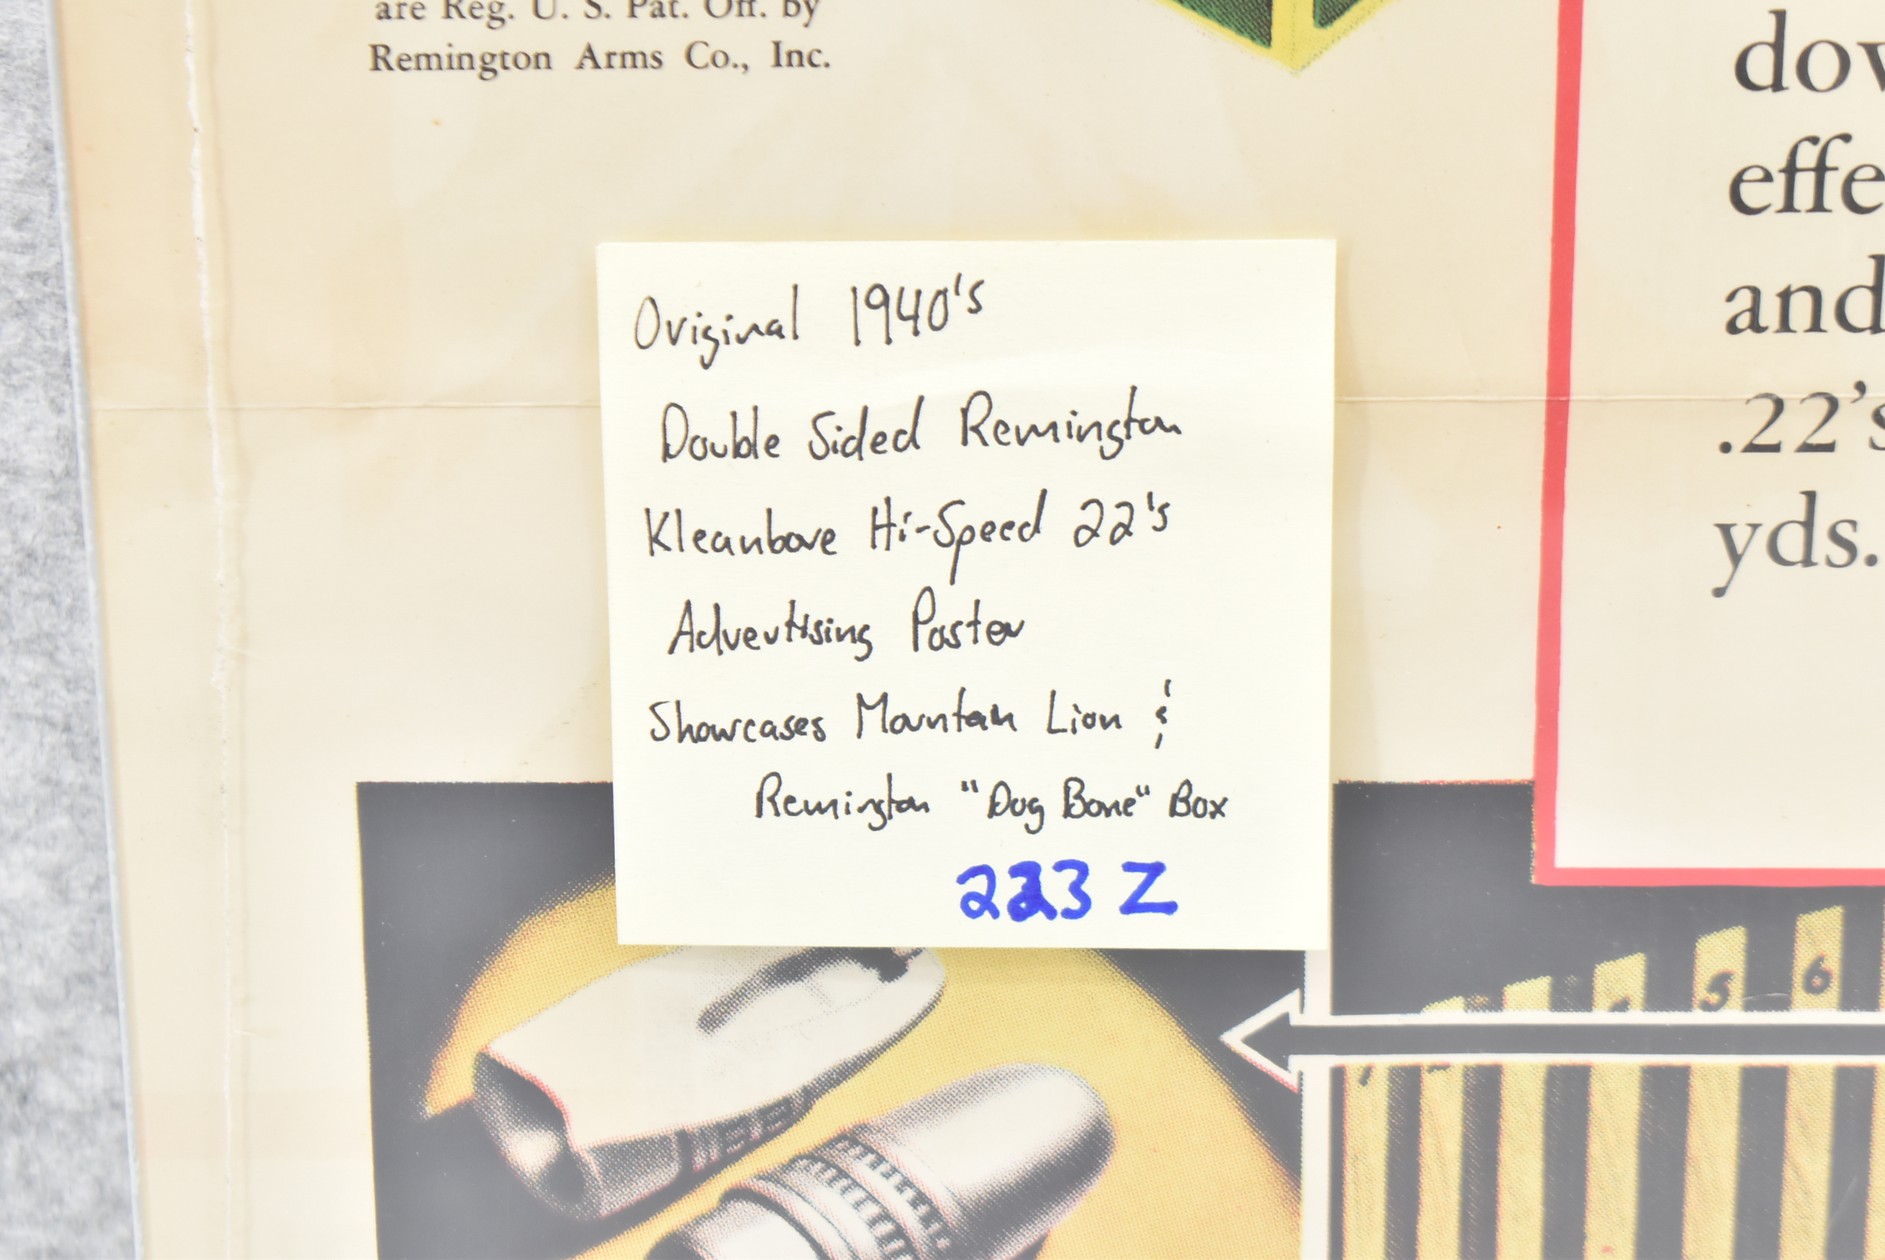 are Reg. U. S. Pat. Off. by
Remington Arms Co., Inc.
effe
and
.22's
yds.
Original 1940's
Double Sided Remington
Kleanbore Hi-Speed 22's
Advertising Poster
Showcases Mountain Lion &
Remington "Dog Bone" Box
223 Z
5 6